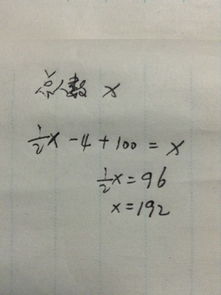 总人数 x
½x - 4 + 100 = x
½x = 96
x = 192